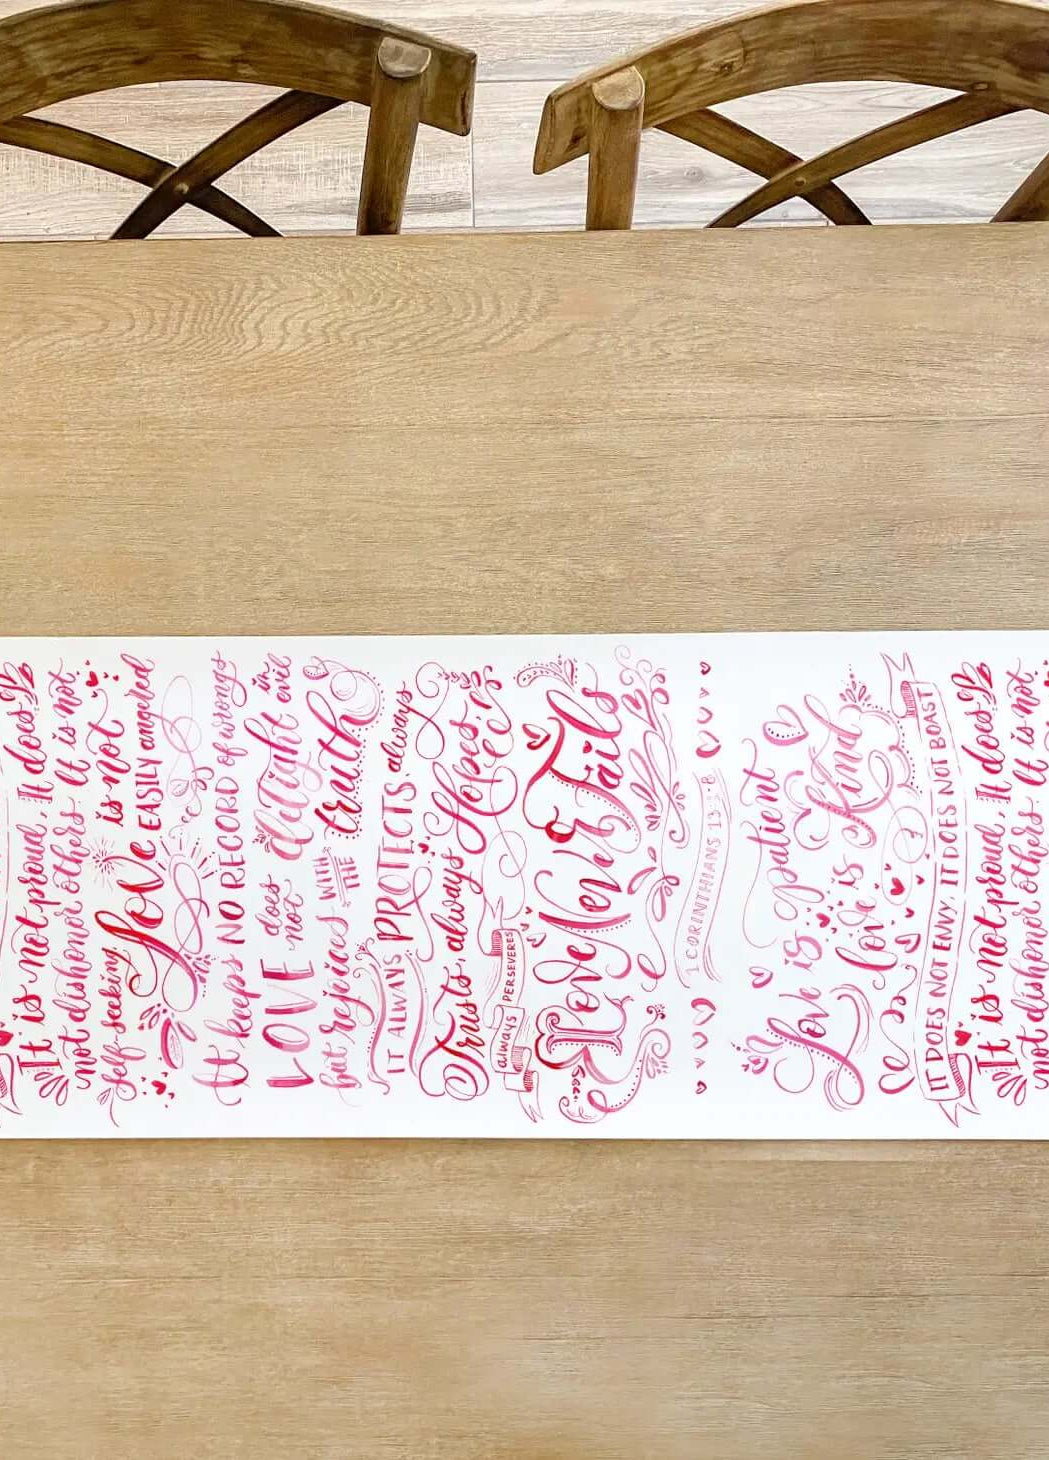 It is not proud. It does
not dishonor others. It is not
self-seeking, is not
love EASILY angered
It keeps NO RECORD of wrongs
LOVE does not delight in evil
but rejoices WITH THE truth
IT ALWAYS PROTECTS, always
Trusts, always Hopes,
always PERSEVERES
Love Never Fails
1 CORINTHIANS
Love is patient
love is Kind
IT DOES NOT ENVY, IT DOES NOT BOAST
It is not proud. It does
not dishonor others. It is not